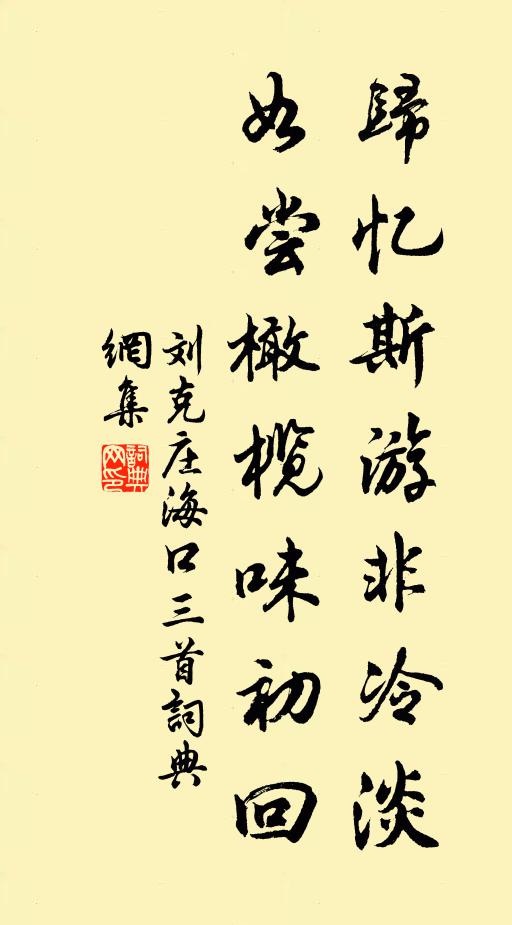 歸忆斯游非冷淡
如尝橄榄味初回
刘克庄海口三首詞典
網集
詞典
网印